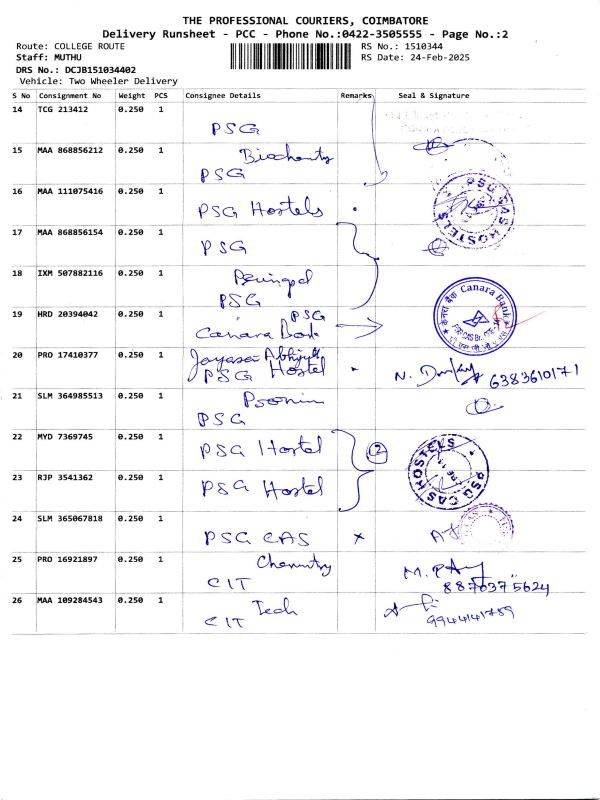 THE PROFESSIONAL COURIERS, COIMBATORE
Delivery Runsheet - PCC - Phone No.:0422-3505555 - Page No.:2
Route: COLLEGE ROUTE RS No.: 1510344
Staff: MUTHU RS Date: 24-Feb-2025
DRS No.: DCJB151034402
Vehicle: Two Wheeler Delivery
S No Consignment No Weight PCS Consignee Details Remarks Seal & Signature
14 TCG 213412 0.250 1
PSG
15 MAA 868856212 0.250 1
PSG
16 MAA 111075416 0.250 1
PSG Hostels
PSG CAS HOSTELS
17 MAA 868856154 0.250 1
PSG
18 IXM 507882116 0.250 1
PSG
19 HRD 20394042 0.250 1 PSG
Canara Bank
केनरा बैंक Canara Bank
20 PRO 17410377 0.250 1
PSG Hostel
6383610171
21 SLM 364985513 0.250 1
PSG
22 MYD 7369745 0.250 1 PSG Hostel 2
PSG CAS HOSTELS
23 RJP 3541362 0.250 1 PSG Hostel
24 SLM 365067818 0.250 1
PSG CAS x
25 PRO 16921897 0.250 1 Chemistry
CIT
8870375624
26 MAA 109284543 0.250 1 Tech
CIT
9944141759